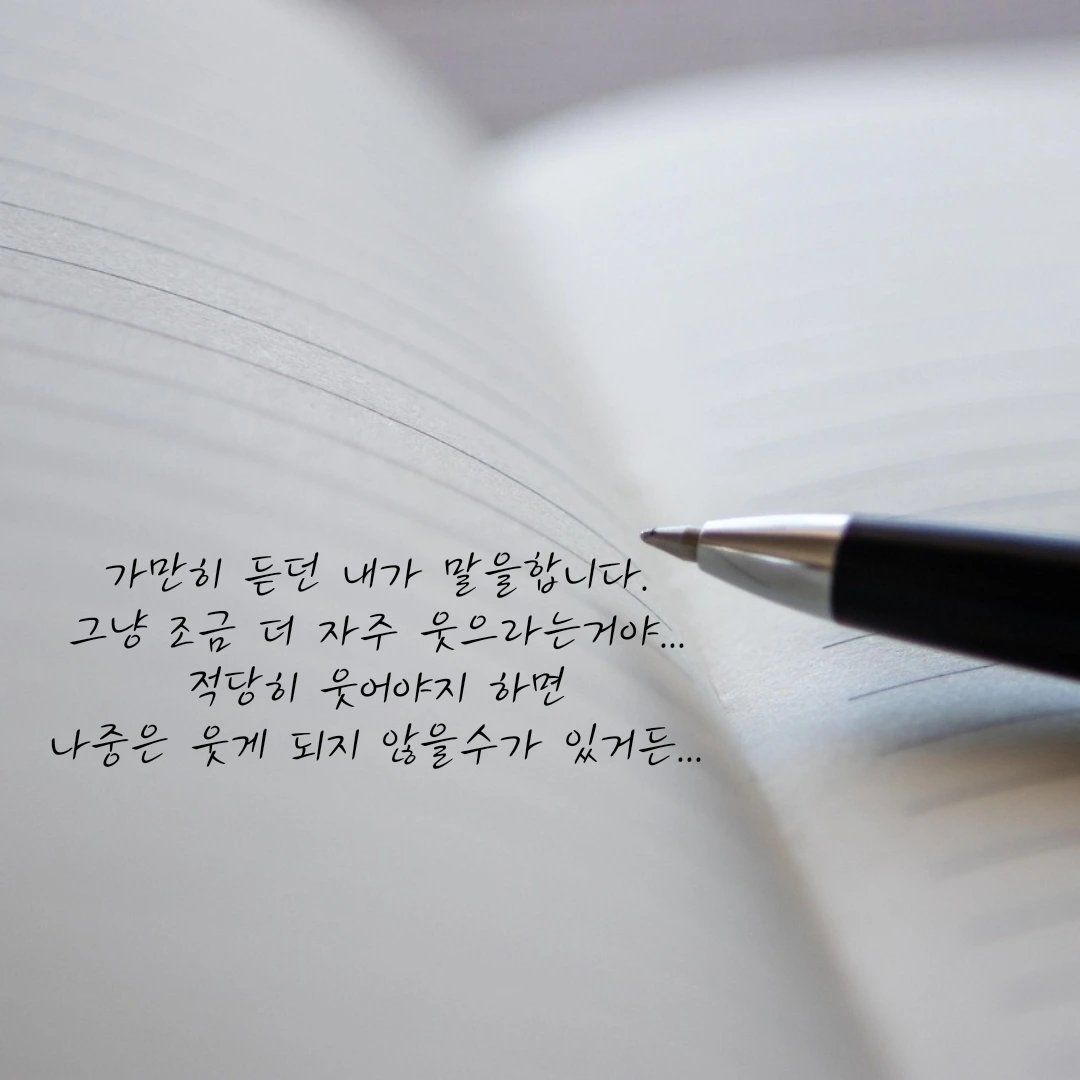 가만히 듣던 내가 말을합니다.
그냥 조금 더 자주 웃으라는거야...
적당히 웃어야지 하면
나중은 웃게 되지 않을수가 있거든...